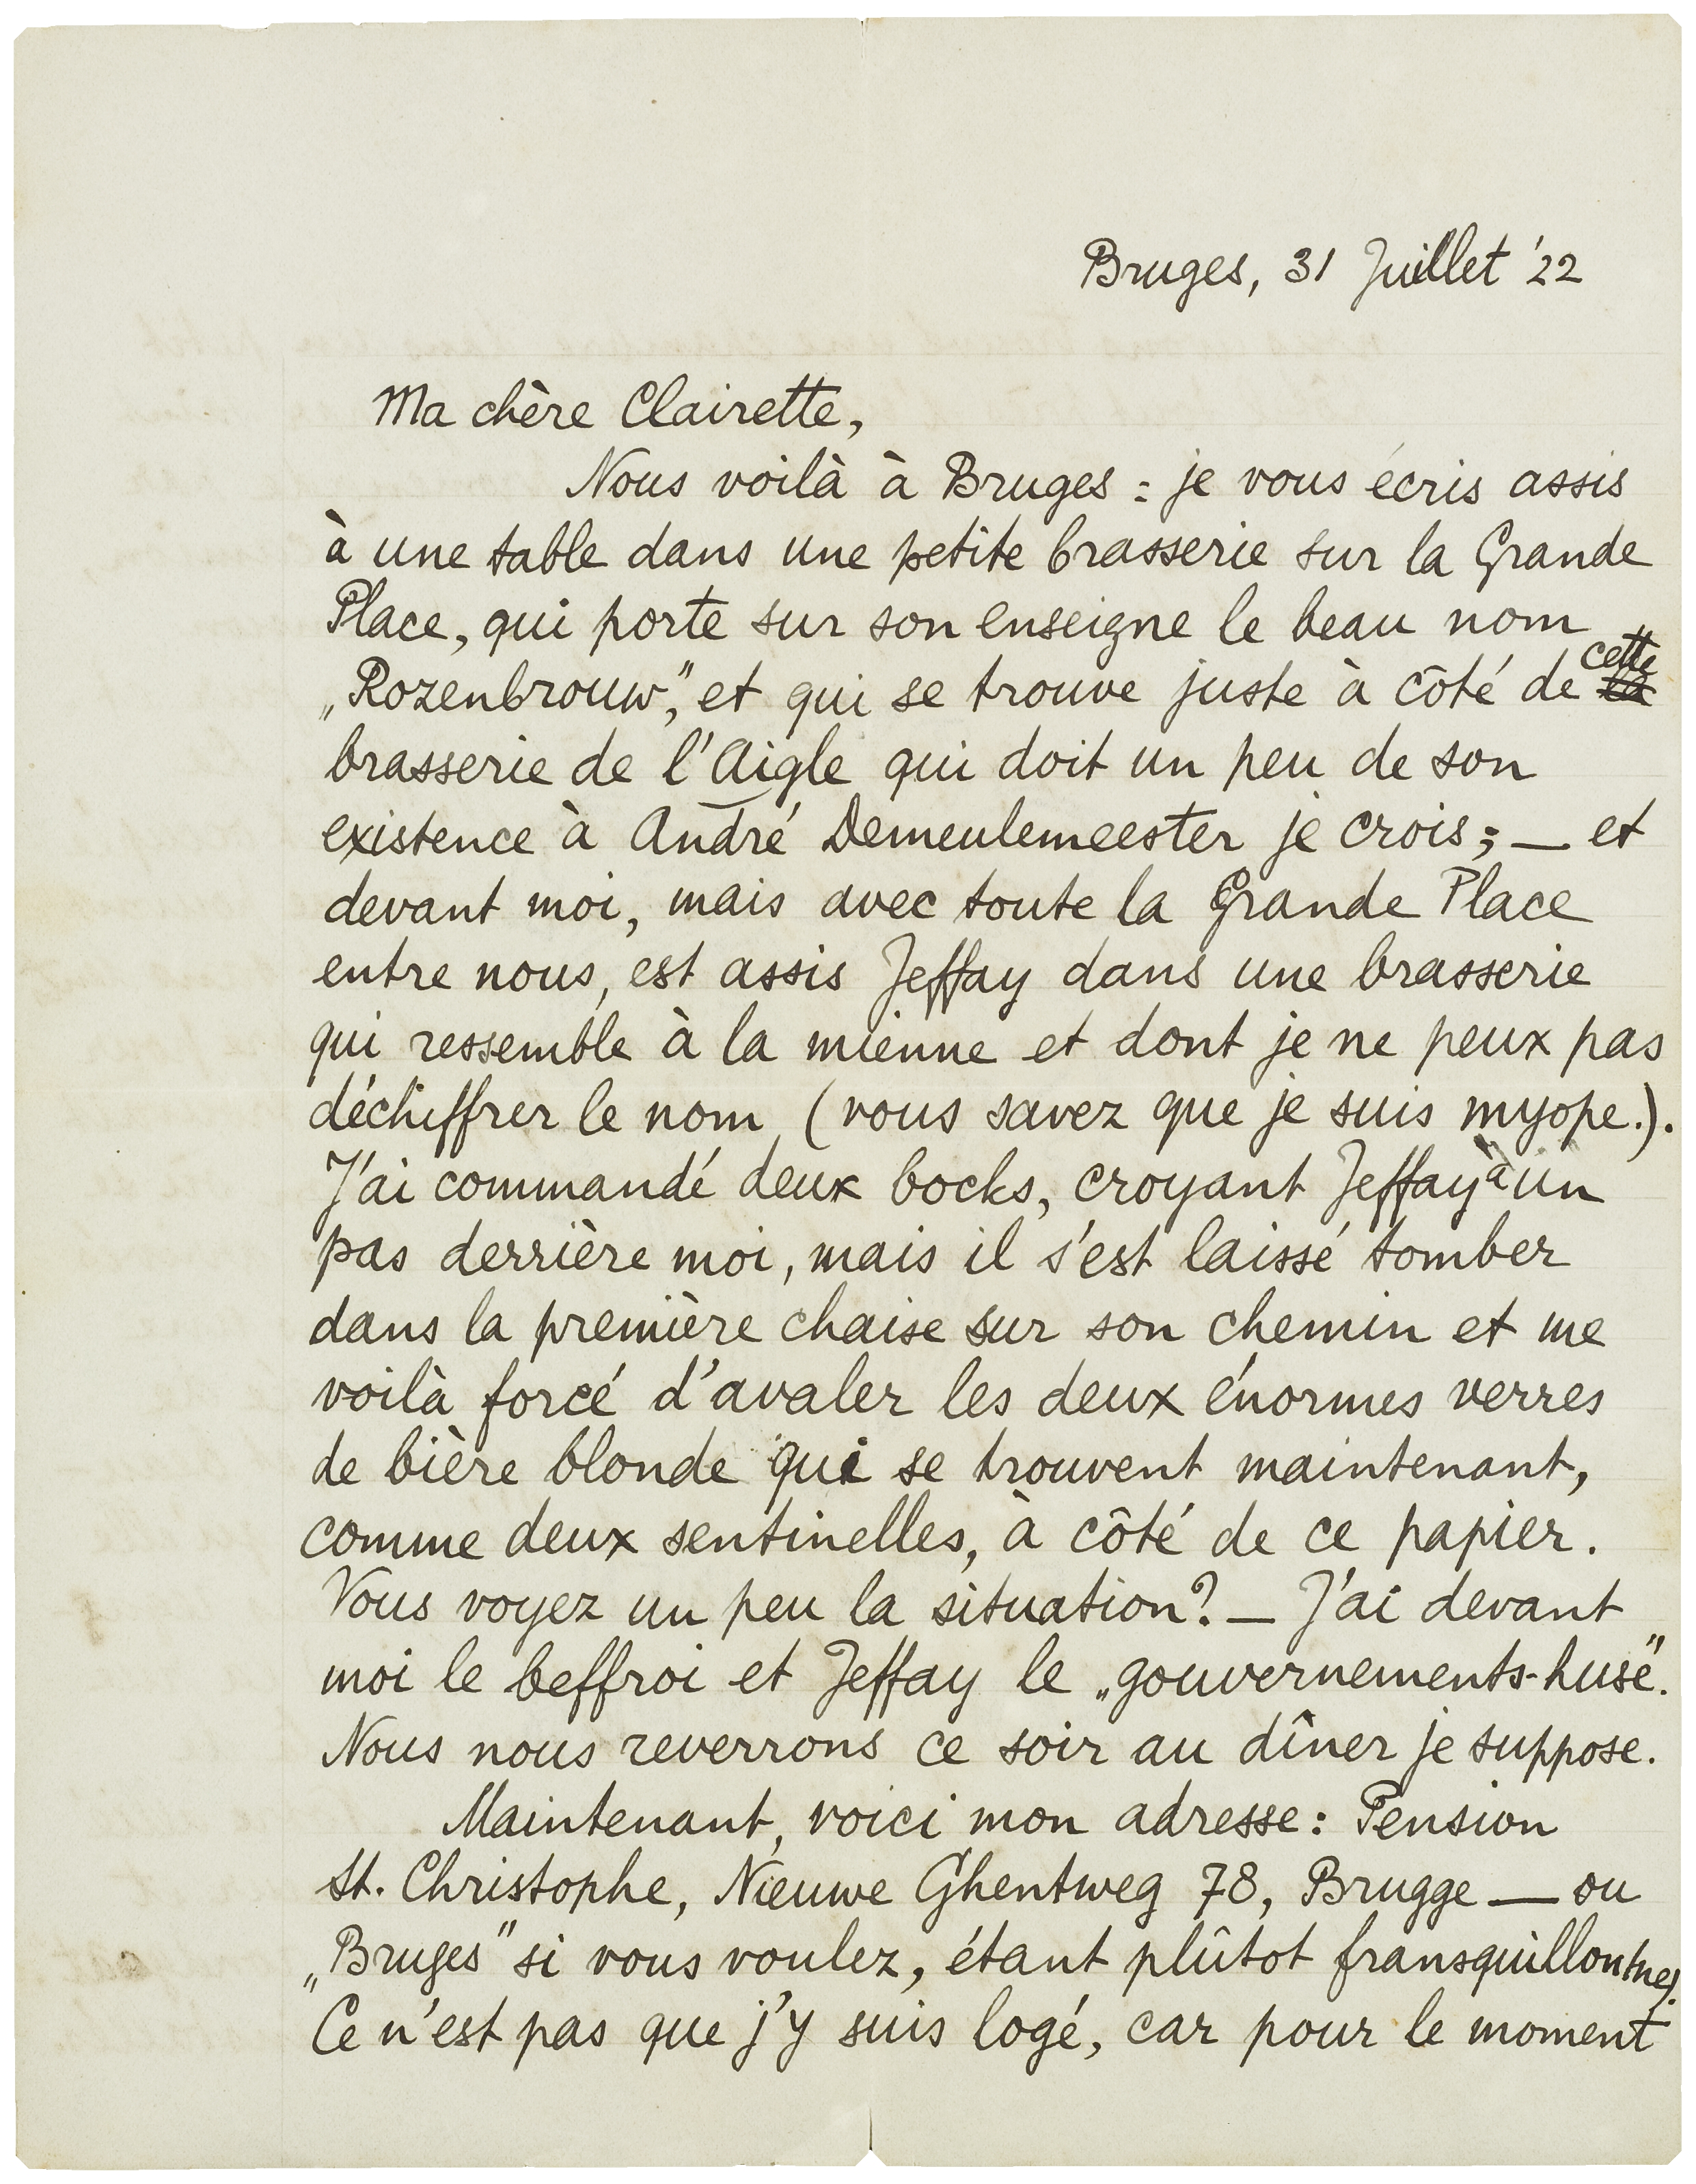 Bruges, 31 Juillet '22
Ma chère Clairette,
Nous voilà à Bruges : je vous écris assis
à une table dans une petite brasserie sur la Grande
Place, qui porte sur son enseigne le beau nom
„Rozenbrouw”, et qui se trouve juste à côté de cette
brasserie de l'Aigle qui doit un peu de son
existence à André Demeulemeester je crois; — et
devant moi, mais avec toute la Grande Place
entre nous, est assis Jeffay dans une brasserie
qui ressemble à la mienne et dont je ne peux pas
déchiffrer le nom (vous savez que je suis myope.).
J'ai commandé deux bocks, croyant Jeffay à un
pas derrière moi, mais il s'est laissé tomber
dans la première chaise sur son chemin et me
voilà forcé d'avaler les deux énormes verres
de bière blonde qui se trouvent maintenant,
comme deux sentinelles, à côté de ce papier.
Vous voyez un peu la situation? — J'ai devant
moi le beffroi et Jeffay le „gouvernements-huse”.
Nous nous reverrons ce soir au dîner je suppose.
Maintenant, voici mon adresse: Pension
St. Christophe, Nieuwe Ghentweg 78, Brugge — ou
„Bruges” si vous voulez, étant plûtot
Ce n'est pas que j'y suis logé, car pour le moment